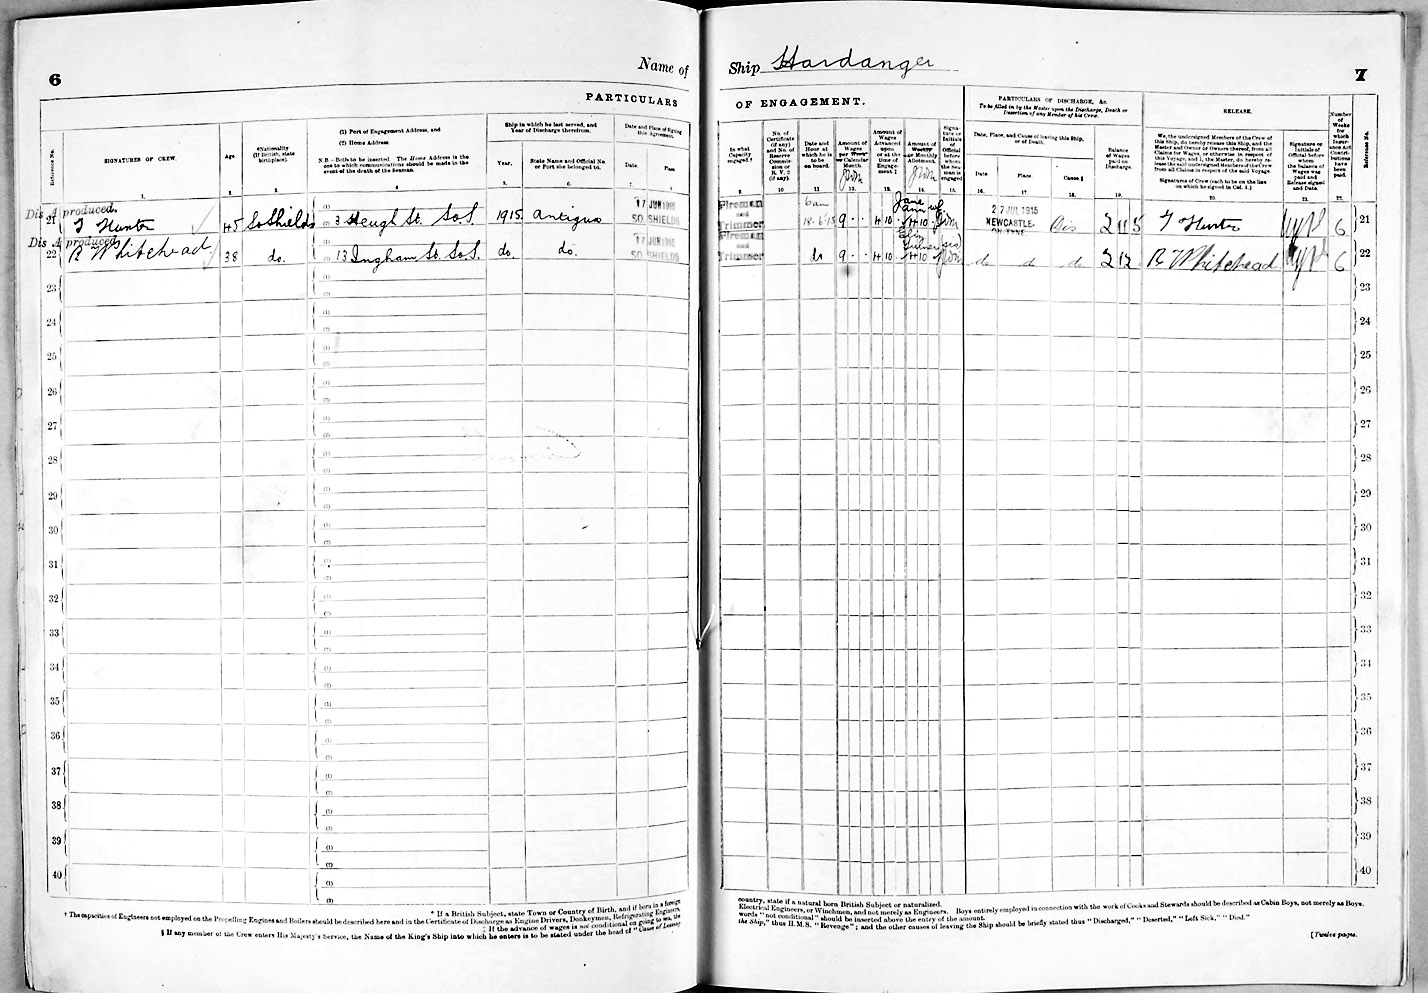 6
Name of
PARTICULARS
Reference No.
SIGNATURES OF CREW.
Age
*Nationality
(If British, state
birthplace).
(1) Port of Engagement Address, and
(2) Home Address
N.B.—Both to be inserted. The Home Address is the
one to which communications should be made in the
event of the death of the Seaman.
Ship in which he last served, and
Year of Discharge therefrom.
Year.
State Name and Official No
or Port she belonged to.
Date and Place of Signing
this Agreement.
Date.
Place
1. 2. 3. 4. 5. 6. 7. 8.
Dis A produced.
21 T Hunter 45 So Shields (1)
(2) 3 Heugh St. So.S. 1915. Antigua 17 JUN 1915
SO. SHIELDS
Dis A produced
22 R Whitehead 38 do. (1)
(2) 13 Ingham St. So.S. do. do. 17 JUN 1915
SO SHIELDS
23
24
25
26
27
28
29
30
31
32
33
34
35
36
37
38
39
40
* If a British Subject, state Town or Country of Birth, and if born in a foreign
† The capacities of Engineers not employed on the Propelling Engines and Boilers should be described here and in the Certificate of Discharge as Engine Drivers, Donkeymen, Refrigerating Engineers,
‡ If the advance of wages is not conditional on going to sea, the
§ If any member of the Crew enters His Majesty's Service, the Name of the King's Ship into which he enters is to be stated under the head of "Cause of Leaving
Ship Hardanger
7
OF ENGAGEMENT.
PARTICULARS OF DISCHARGE, &c.
To be filled in by the Master upon the Discharge, Death or
Desertion of any Member of his Crew.
RELEASE.
In what
Capacity
engaged.†
No. of
Certificate
(if any)
and No. of
Reserve
Commis-
sion or
R. V. 2
(if any).
Date and
Hour at
which he is
to be
on board.
Amount of
Wages
per Week
or Calendar
Month.
Amount of
Wages
Advanced
upon
or at the
time of
Engage-
ment.‡
Amount of
Weekly
or Monthly
Allotment.
Signa-
ture or
Initials
of
Official
before
whom
the Sea-
man is
engaged
Date, Place, and Cause of leaving this Ship,
or of Death.
Date
Place.
Cause.§
Balance
of Wages
paid on
Discharge.
We, the undersigned Members of the Crew of
this Ship, do hereby release this Ship, and the
Master and Owner or Owners thereof, from all
Claims for Wages, or otherwise in respect of
this Voyage, and I, the Master, do hereby re-
lease the said undersigned Members of the Crew
from all Claims in respect of the said Voyage.
Signatures of Crew (each to be on the line
on which he signed in Col. 1.)
Signature or
Initials of
Official before
whom the
balance of
Wages was
paid and
Release signed
and Date.
Number
of
Weeks
for
which
Insur-
ance Act
Contri-
butions
have
been
paid.
Reference No.
9. 10 11 12. 13. 14. 15. 16. 17. 18. 19. 20. 21. 22.
Fireman
and
Trimmer 6 am
18.6.15 9 4 10 Jane 4 10 27 JUL 1915
NEWCASTLE-
ON-TYNE. Dis 2 11 5 T Hunter 6 21
Fireman
and
Trimmer do 9 4 10 4 10 do do do 2 12 R Whitehead 6 22
23
24
25
26
27
28
29
30
31
32
33
34
35
36
37
38
39
40
country, state if a natural born British Subject or naturalized.
Electrical Engineers, or Winchmen, and not merely as Engineers. Boys entirely employed in connection with the work of Cooks and Stewards should be described as Cabin Boys, not merely as Boys.
words "not conditional" should be inserted above the entry of the amount.
the Ship," thus H.M.S. "Revenge"; and the other causes of leaving the Ship should be briefly stated thus "Discharged," "Deserted," "Left Sick," "Died."
[Twelve pages.